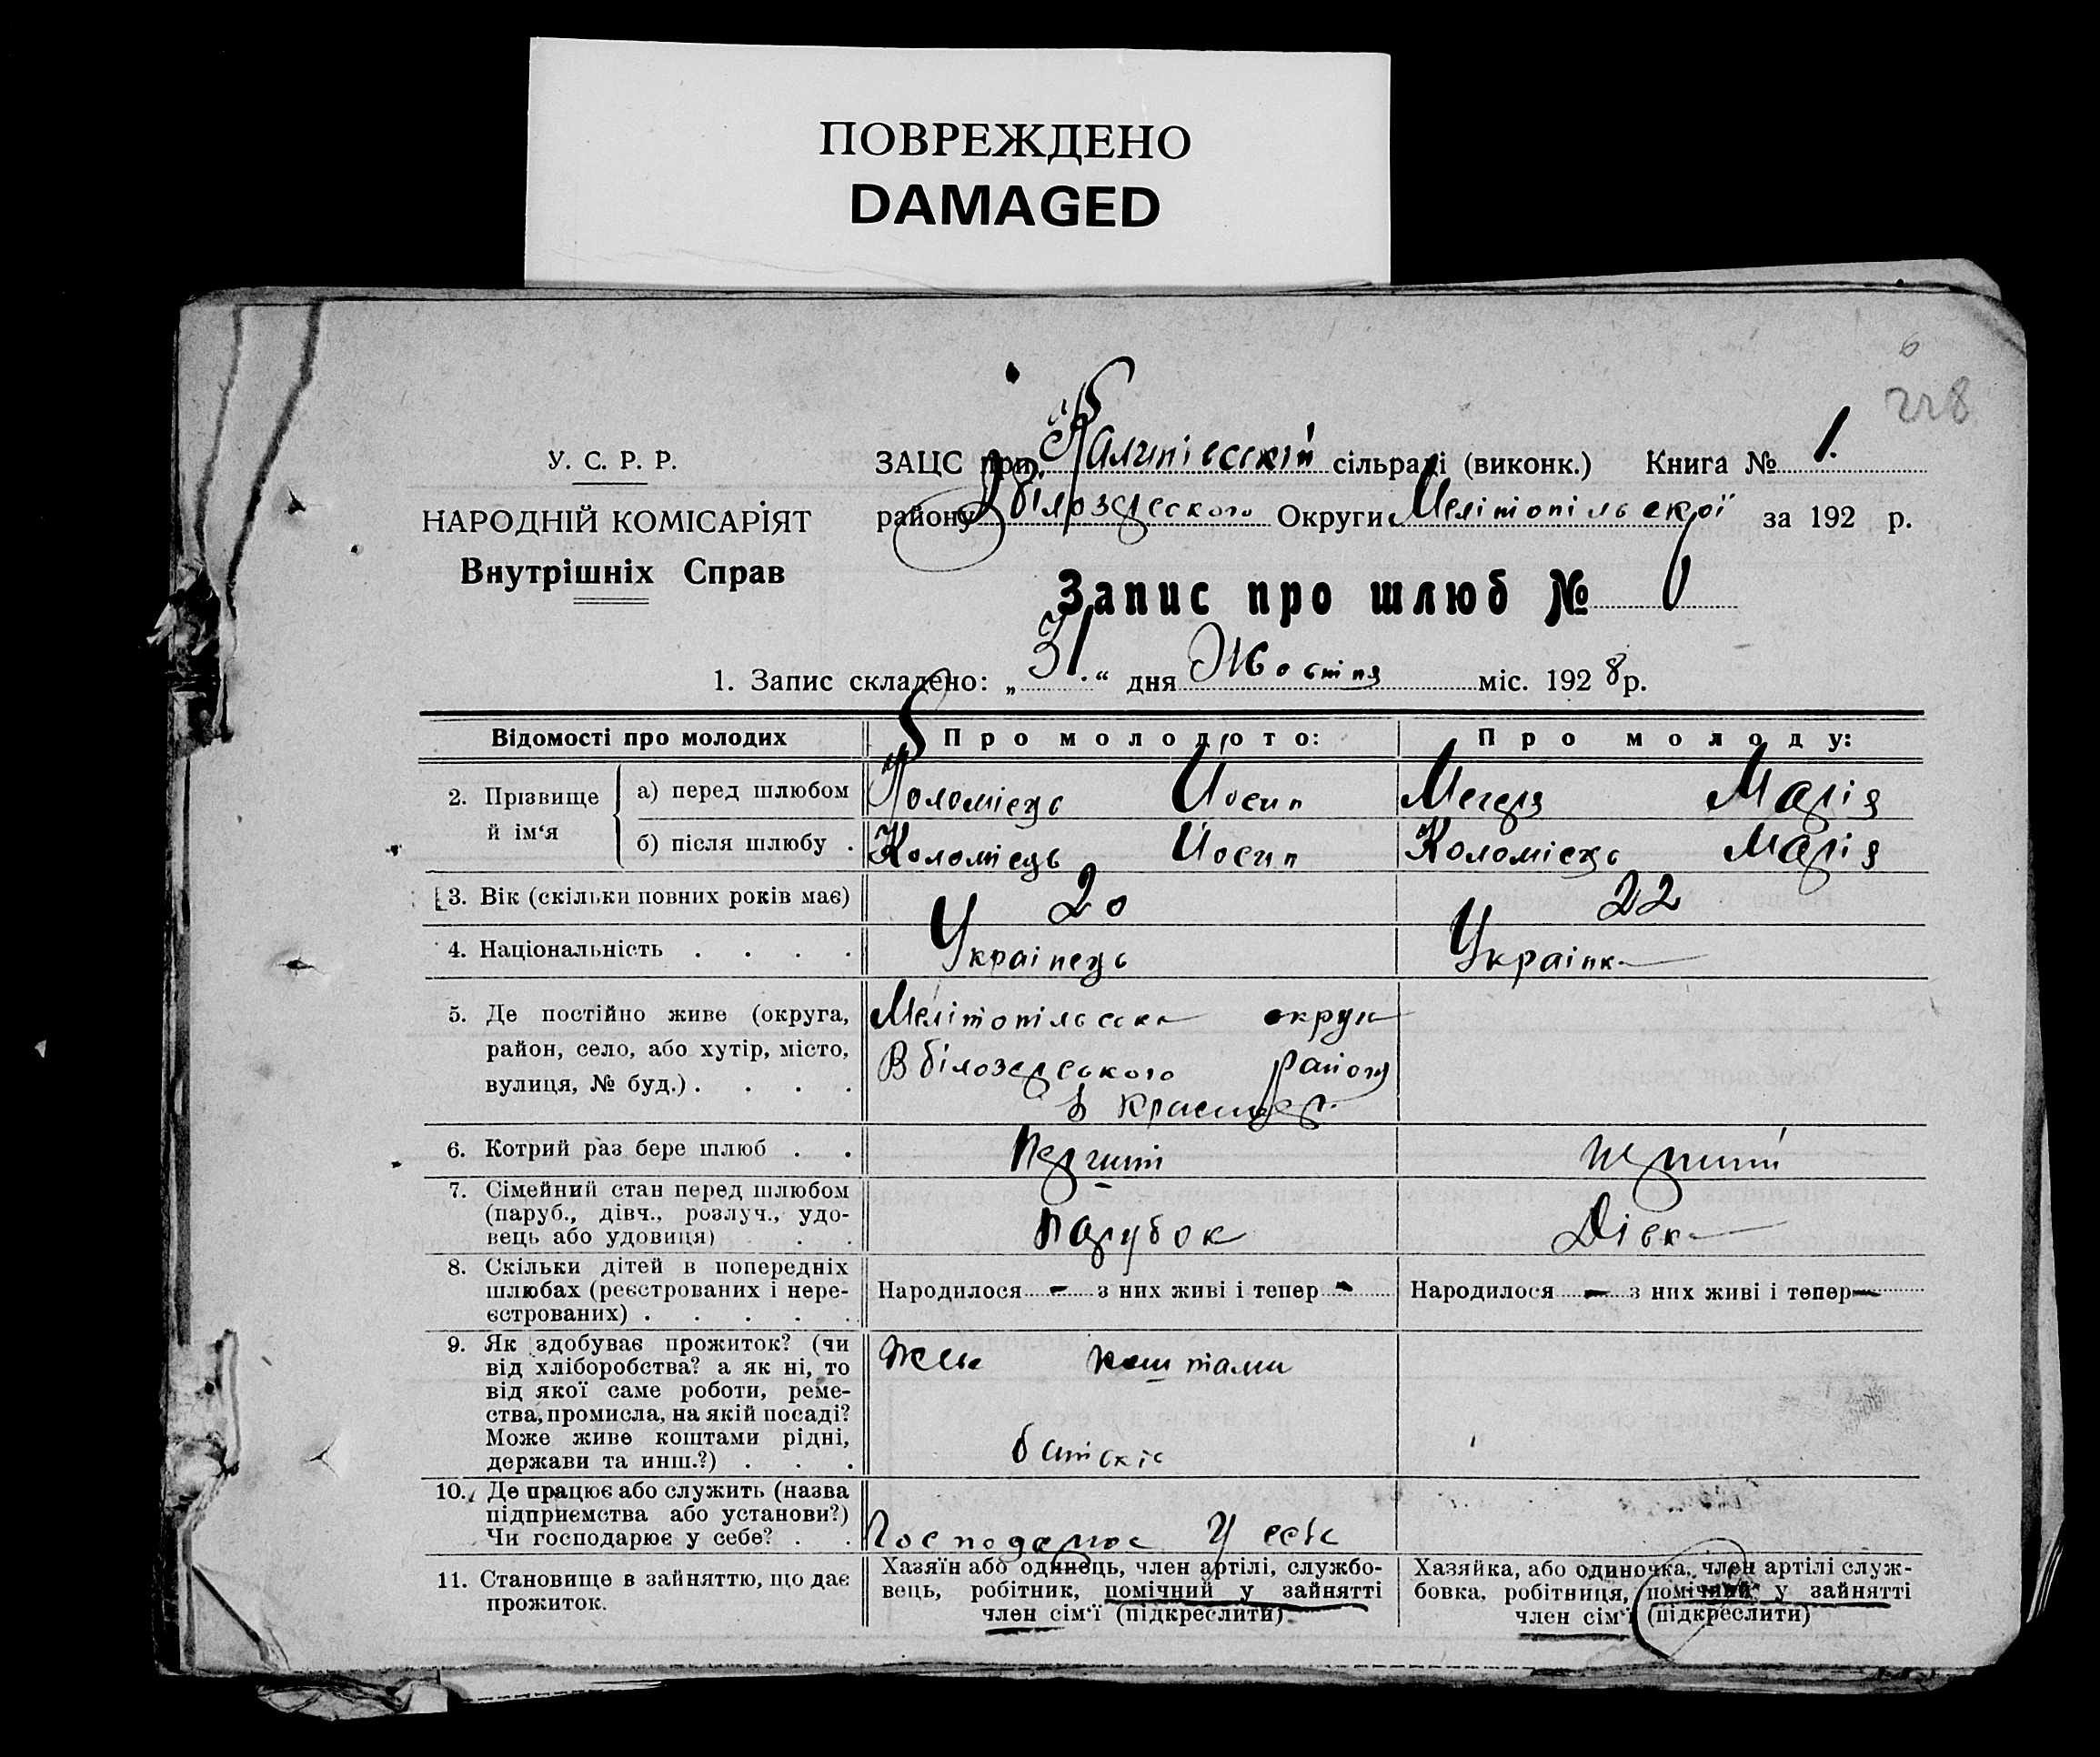 ПОВРЕЖДЕНО
DAMAGED
6
228
У. С. Р. Р.
НАРОДНІЙ КОМІСАРІЯТ
Внутрішніх Справ
ЗАЦС при сільраді (виконк.) Книга № 1.
району Вбілозерського Округи Мелітопільської за 192 р.
Запис про шлюб №
1. Запис складено: „31.“ дня Жовтня міс. 1928 р.
Відомості про молодих Про молодого: Про молоду:
2. Прізвище й ім‘я
а) перед шлюбом Коломієць Йосип Мегеря Марія
б) після шлюбу . Коломієць Йосип Коломієць Марія
3. Вік (скільки повних років має) 20 22
4. Національність . . . . Українець Українка
5. Де постійно живе (округа, Мелітопільська округа
район, село, або хутір, місто, Вбілозерського району
вулиця, № буд.) . . . .
6. Котрий раз бере шлюб . . Перший перший
7. Сімейний стан перед шлюбом
(паруб., дівч., розлуч., удо-
вець або удовиця) . . Парубок Дівка
8. Скільки дітей в попередніх
шлюбах (реєстрованих і нере- Народилося - з них живі і тепер - Народилося - з них живі і тепер -
єстрованих) . . . . .
9. Як здобуває прожиток? (чи
від хліборобства? а як ні, то Живе коштами
від якої саме роботи, реме-
ства, промисла, на якій посаді?
Може живе коштами рідні, батьків
держави та инш.?) . . .
10. Де працює або служить (назва
підприємства або установи?)
Чи господарює у себе? . . Господарює У себе
11. Становище в зайняттю, що дає
прожиток.
Хазяїн або одинець, член артілі, службо-
вець, робітник, помічний у зайнятті
член сім‘ї (підкреслити)
Хазяйка, або одиночка, член артілі служ-
бовка, робітниця, помічний у зайнятті
член сім‘ї (підкреслити)